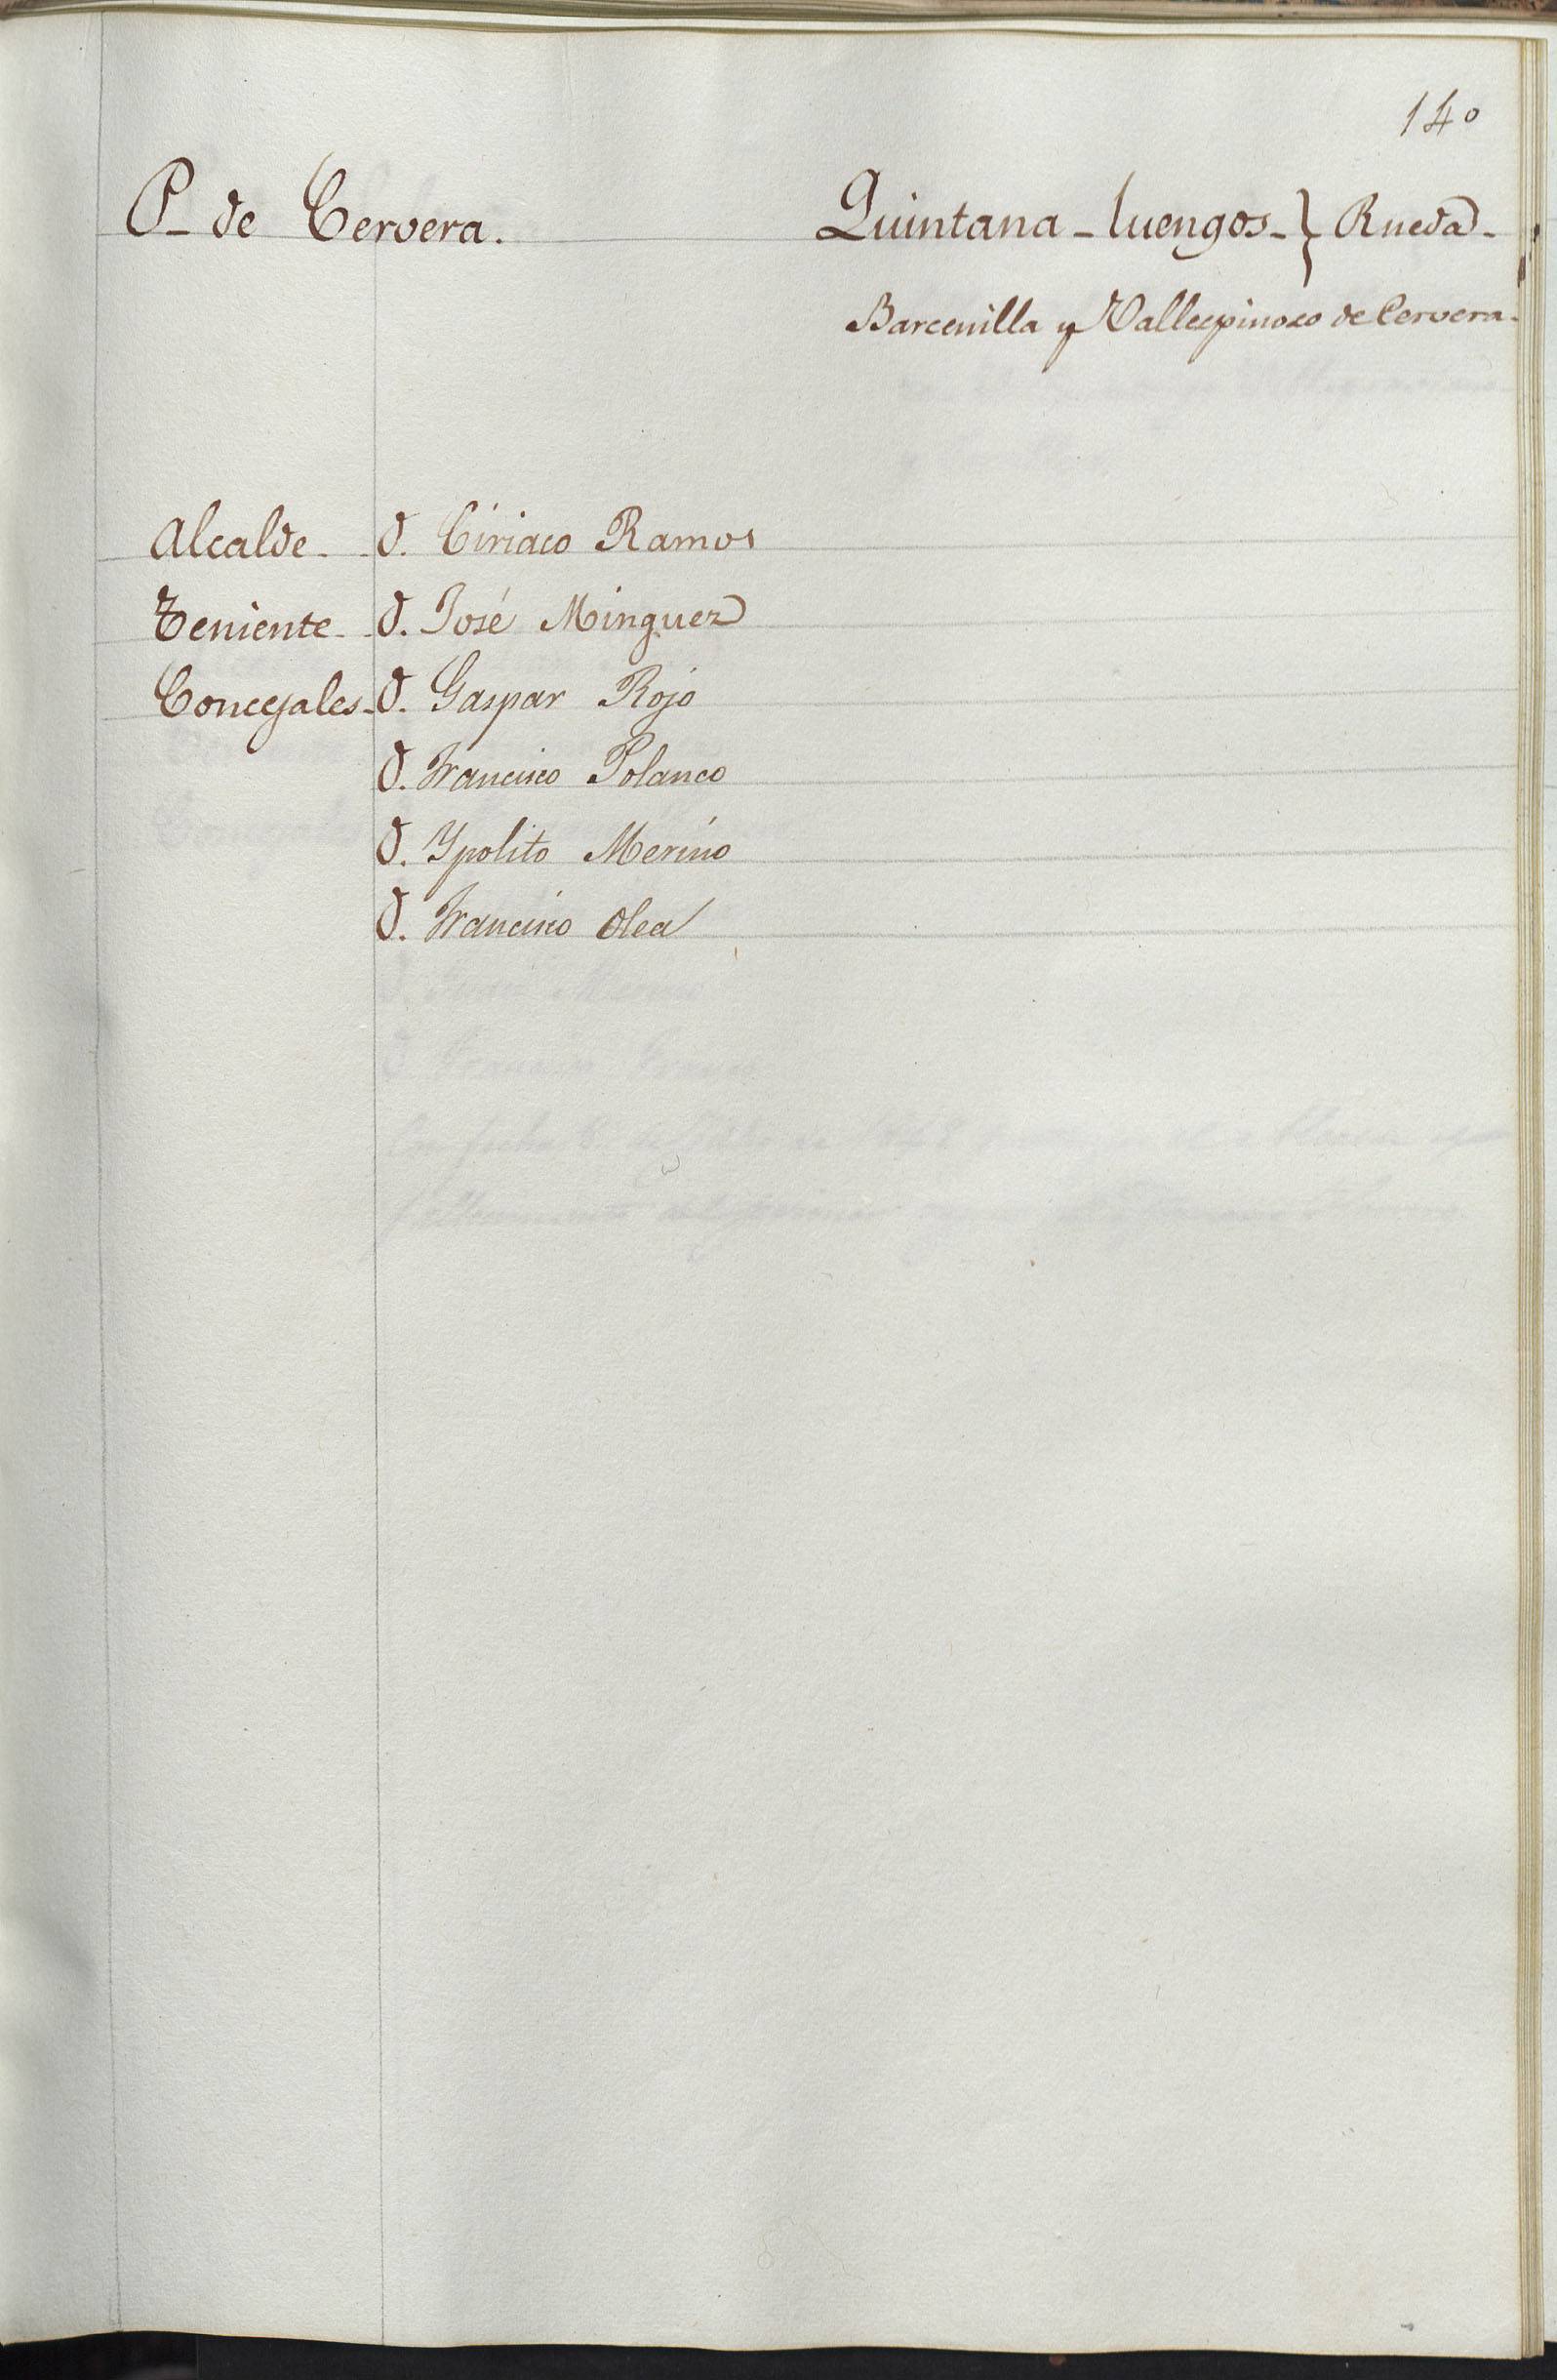 140
P- de Cervera. Quintana-luengos-} Rueda-
Barcenilla y Vallespinoso de Cervera.
Alcalde- D. Ciriaco Ramos
Teniente- D. José Minguez
Concejales- D. Gaspar Rojo
D. Francisco Polanco
D. Ypolito Merino
D. Francisco Olea